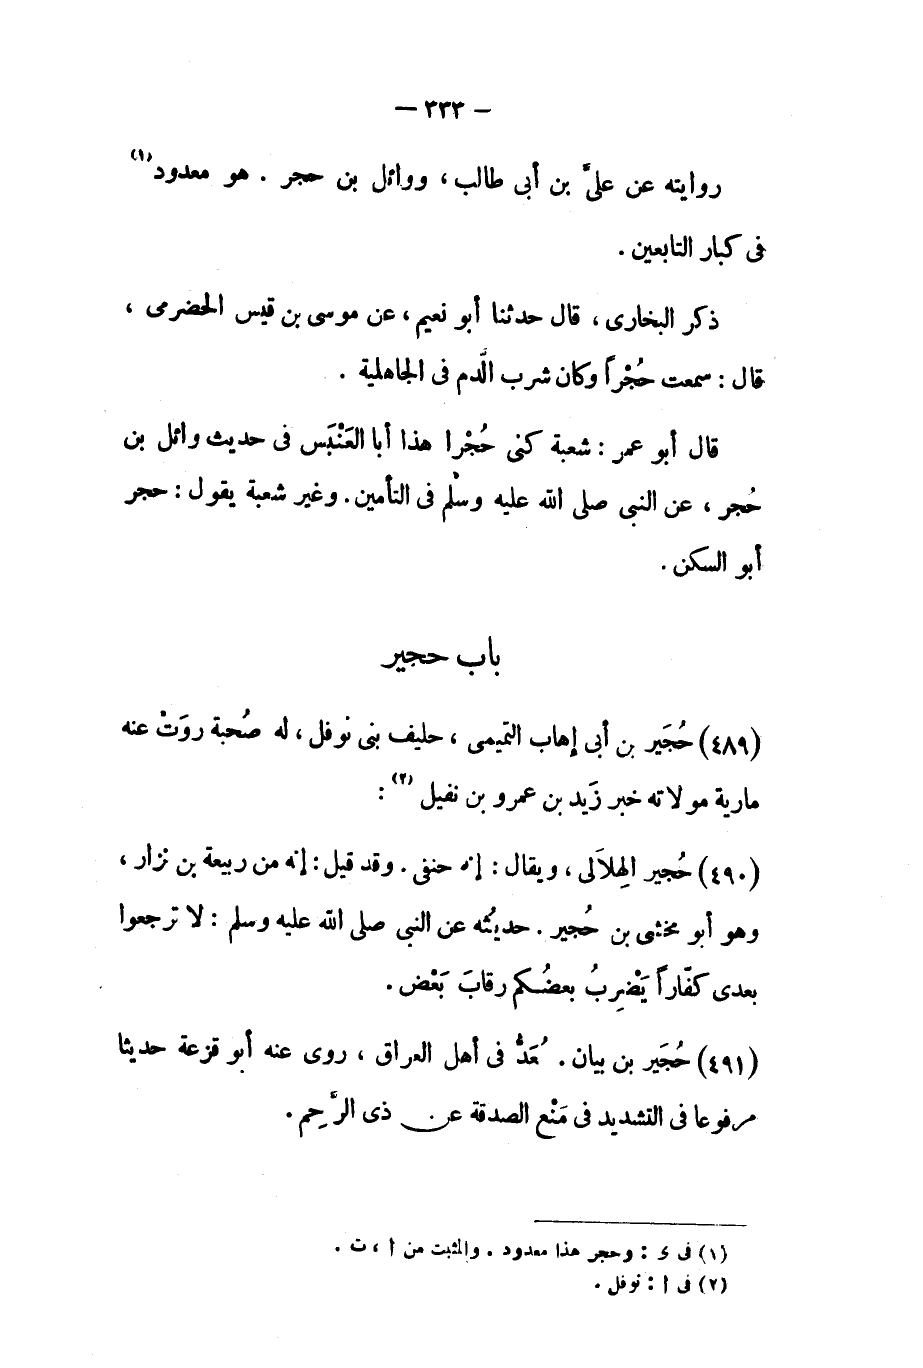 — ٣٣٣ —
روايته عن علىّ بن أبى طالب، ووائل بن حجر . هو معدود(١)
فى كبار التابعين .
ذكر البخارى، قال حدثنا أبو نعيم، عن موسى بن قيس الحضرمى ،
قال : سمعت حُجْراً وكان شرب الدّم فى الجاهلية .
قال أبو عمر : شعبة كنى حُجْرا هذا أبا العَنْبَس فى حديث وائل بن
حُجر ، عن النبى صلى الله عليه وسلم فى التأمين . وغير شعبة يقول : حجر
أبو السكن .
باب حجير
(٤٨٩) حُجَير بن أبى إهاب التميمى ، حليف بنى نوفل ، له صُحبة روَتْ عنه
مارية مولاته خبر زَيد بن عمرو بن نفيل (٢) :
(٤٩٠) حُجير الهِلاَلى ، ويقال : إنه حنفى . وقد قيل : إنه من ربيعة بن نزار ،
وهو أبو مخشى بن حُجير . حديثُه عن النبى صلى الله عليه وسلم : لا ترجعوا
بعدى كفّاراً يَضْرِبُ بعضُكم رقابَ بَعْض .
(٤٩١) حُجَير بن بيان . يُعَدُّ فى أهل العراق ، روى عنه أبو قزعة حديثا
مرفوعا فى التشديد فى مَنْع الصدقة عن ذى الرَّحِم .
(١) فى ى : وحجر هذا معدود . والمثبت من أ ، ت .
(٢) فى أ : نوفل .